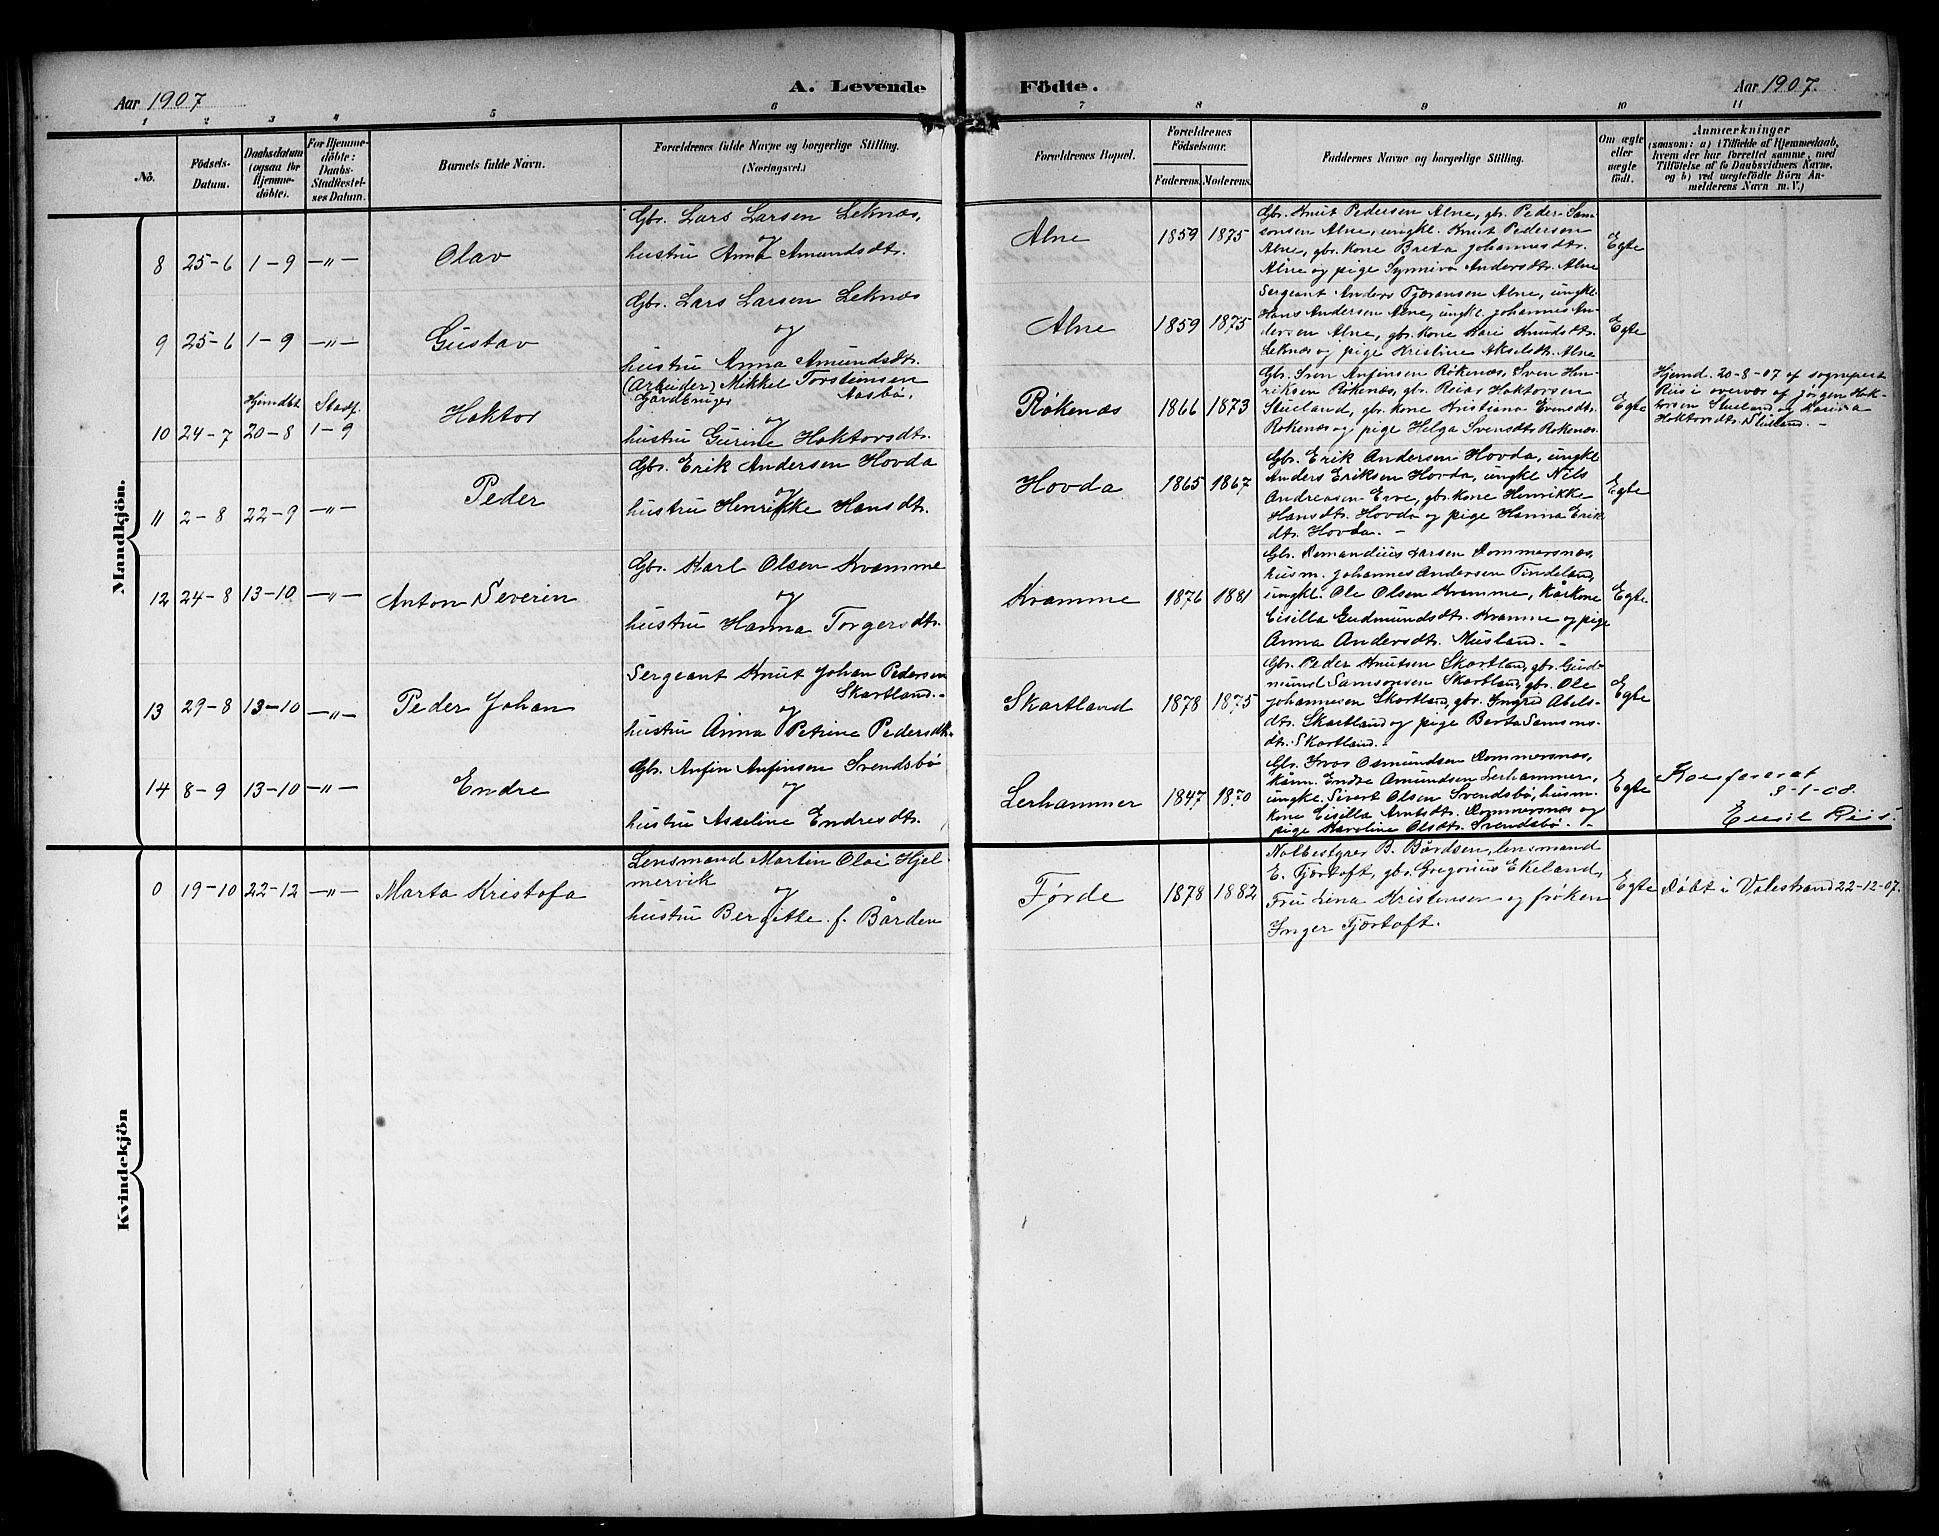 Aar 1907
A. Levende Födte.
Aar 1907.
1 2 3 4 5 6 7 8 9 10 11
No.
Födsels-
Datum.
Daabsdatum
(ogsaa for
Hjemme-
döbte).
For Hjemme-
döbte:
Daabs-
Stadfæstel-
ses Datum.
Barnets fulde Navn.
Forældrenes fulde Navne og borgerlige Stilling.
(Næringsvei.)
Forældrenes Bopæl.
Forældrenes
Födselsaar.
Faderens. Moderens.
Faddernes Navne og borgerlige Stilling.
Om ægte
eller
uægte
födt.
Anmærkninger
(saasom: a) i Tilfælde af Hjemmedaab,
hvem der har forrettet samme, med
Tilföielse af to Daabsvidners Navne,
og b) ved uægtefödte Börn An-
melderens Navn m. V.)
Mandkjön.
8 25-6 1-9 —"— Olav
Gbr. Lars Larsen Leknæs,
og
hustru Anna Amundsdtr.
Alne 1859 1875
Gbr. Knut Pedersen Alne, gbr. Peder Sam-
sonsen Alne, ungkl. Knut Pedersen
Alne, gbr. kone Breta Johannesdtr.
Alne og pige Synniva Andersdtr. Alne
Egte
9 25-6 1-9 —"— Gustav
Gbr. Lars Larsen Leknæs
og
hustru Anna Amundsdtr.
Alne 1859 1875
Sergeant Anders Tjøransen Alne, ungkl.
Hans Andersen Alne, ungkl. Johannes An-
dersen Alne, gbr. kone Kari Knudsdtr.
Leknæs og pige Kristine Akseldtr. Alne
Egte
10 24-7 Hjemdbt. 20-8 Stadf. 1-9 Haktor
(Arbeider) Mikkel Torstensen
Gårdbruger Aasbø,
og
hustru Gurine Haktorsdtr.
Røkenæs 1866 1873
Gbr. Sven Anfinsen Røkenæs, Sven Hen-
riksen Røkenæs, gbr. Reias Haktorsen
Stueland, gbr. kone Kristiana Evensdtr.
Røkenæs og pige Helga Svensdtr. Røkenæs.
Egte
Hjemd. 20-8-07 af sogneprest
Riis i overvær af Jørgen Hak-
torsen Stueland og Karina
Haktorsdtr. Stueland. —
11 2-8 22-9 —"— Peder
Gbr. Erik Andersen Hovda
og
hustru Henrikke Hansdtr.
Hovda 1865 1867
Gbr. Erik Andersen Hovda, ungkl.
Anders Eriksen Hovda, ungkl. Nils
Andreasen Erve, gbr. kone Henrikke
Hansdtr. Hovda og pige Hanna Eriks
dtr. Hovda. —
Egte
12 24-8 13-10 —"— Anton Severin
Gbr. Karl Olsen Kvamme
og
hustru Hanna Torgersdtr.
Kvamme 1876 1881
Gbr. Larsen Rommersnæs,
husm. Johannes Andersen Tindeland,
ungkl. Ole Olsen Kvamme, kårkone
Cisilla Gudmundsdtr. Kvamme og pige
Anna Andersdtr. Musland. —
Egte
13 29-8 13-10 —"— Peder Johan
Sergeant Knut Johan Pedersen
Skartland. —
og
hustru Anna Petrine Pedersdtr.
Skartland 1878 1875
Gbr. Peder Knutsen Skartland, gbr. Gud-
mund Samsonsen Skartland, gbr. Ole
Johannesen Skartland, gbr. Ingrid Abels-
dtr. Skartland og pige Berta Samsons-
dtr. Skartland. —
Egte
14 8-9 13-10 —"— Endre
Gbr. Anfin Anfinsen Svendsbø
og
hustru Asseline Endresdtr.
Lerhammer 1847 1870
Gbr. Ivar Osmundsen Rommersnæs,
kårm. Endre Amundsen Lerhammer,
ungkl. Sivert Olsen Svendsbø, husm.
kone Cisilla Arntsdtr. Rommersnæs og
pige Karoline Olsdtr. Svendsbø. —
Egte
Konfererat
8-1-08.
Emil Riis.
Kvindekjön
0 19-10 22-12 —"— Marta Kristofa
Lensmand Martin Olai Hjel
mervik
og
hustru Bergitte f. Bården
Førde 1878 1882
Notbestyrer B. Bårdsen, lensmand
E. Fjørtoft, gbr. Gregorius Ekeland,
Fru Lina Kristensen og frøken
Inger Fjørtoft.
Egte
Døbt i Valestrand 22-12-07.